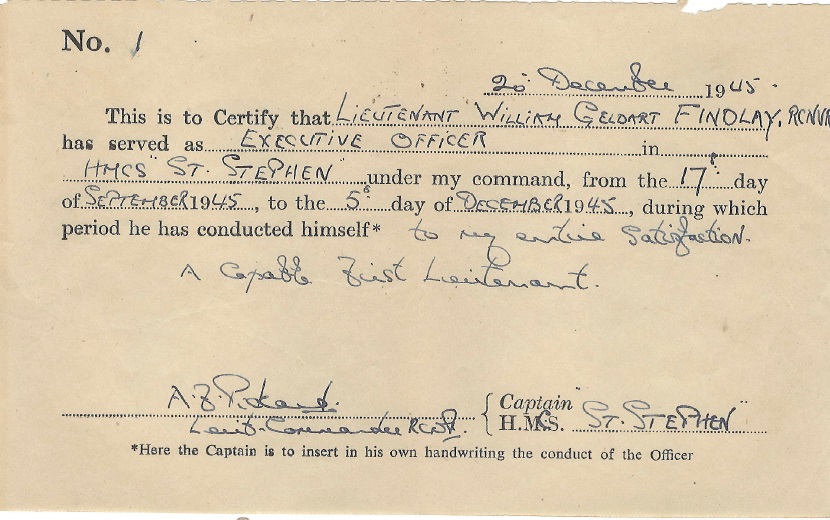 No. 1
20 December 1945.
This is to Certify that LIEUTENANT WILLIAM GELDART FINDLAY, RCNVR
has served as EXECUTIVE OFFICER in
HMCS "ST. STEPHEN" under my command, from the 17th day
of SEPTEMBER 1945, to the 5th day of DECEMBER 1945, during which
period he has conducted himself* to my entire satisfaction.
A Capable First Lieutenant.
A.F. Pickard. Captain
Lieut-Commander RCNR. H.M.C.S. "ST. STEPHEN"
*Here the Captain is to insert in his own handwriting the conduct of the Officer